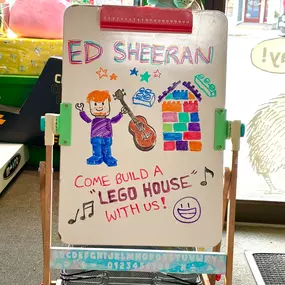 ED SHEERAN
COME BUILD A
"LEGO HOUSE"
WITH US!
ABCDEFGHIJKLMNOPQRSTUVWXYZ
0123456789